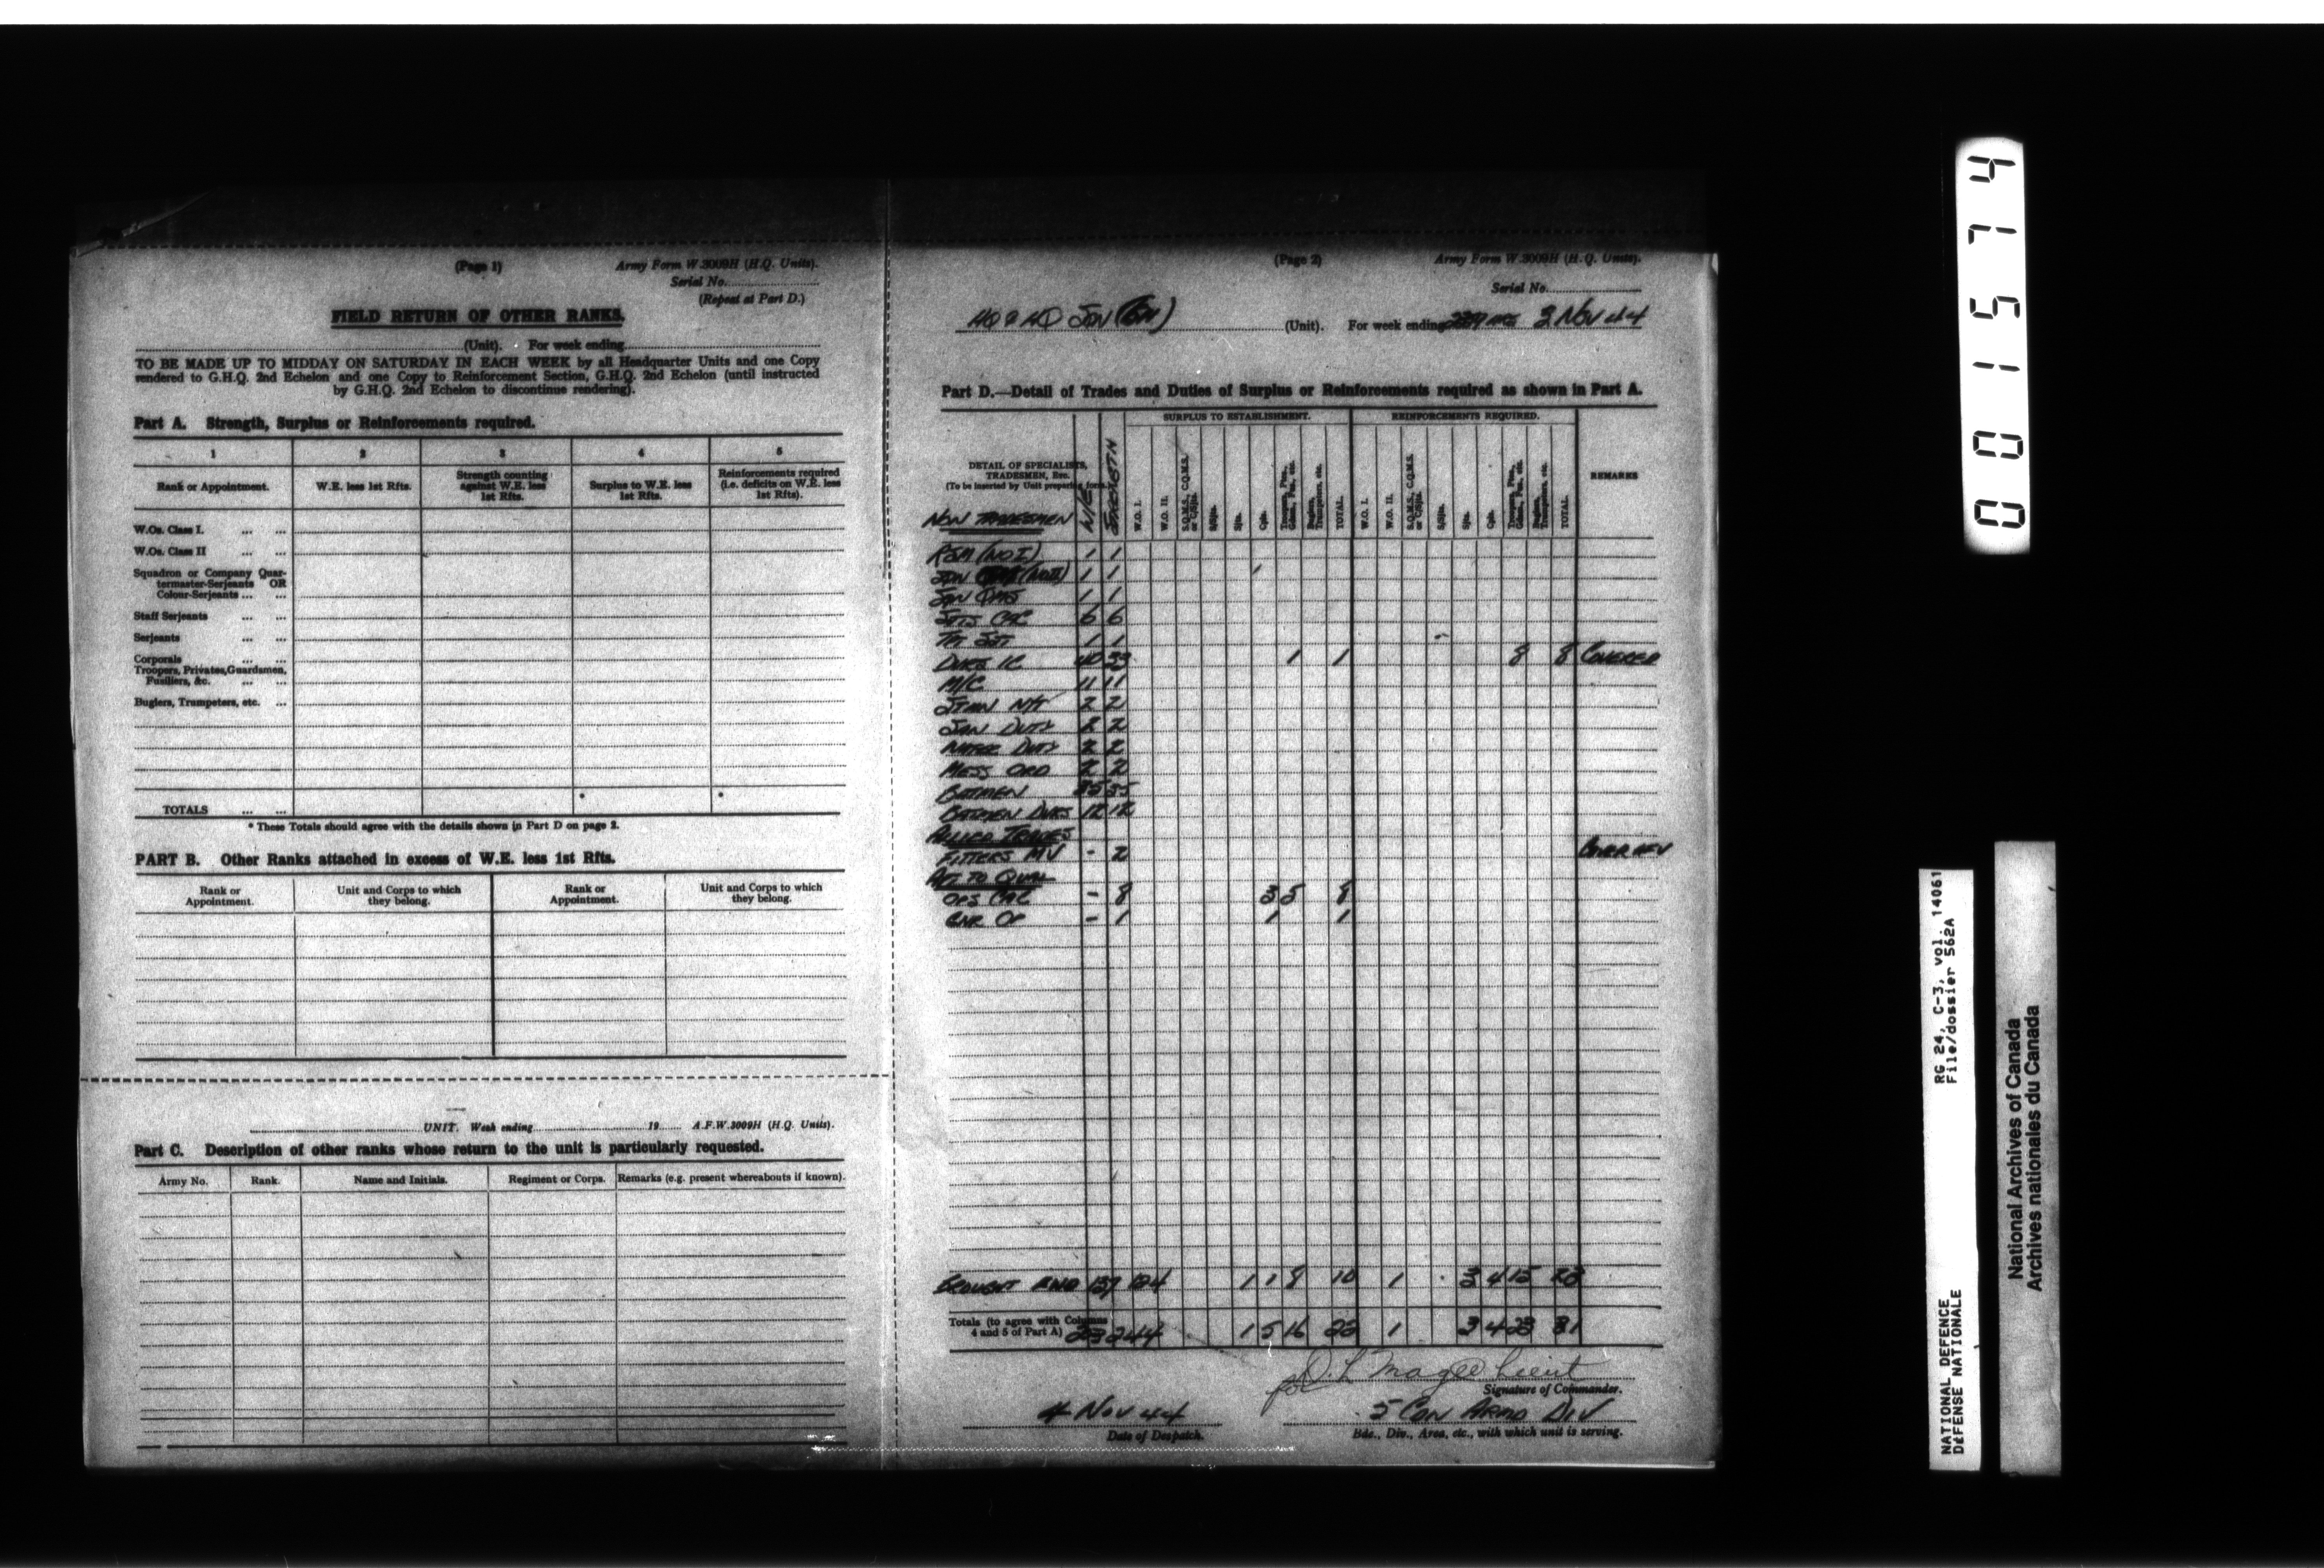 (Page 1) Army Form W.3009H (H.Q. Units).
Serial No.
(Repeat at Part D.)
FIELD RETURN OF OTHER RANKS.
(Unit). For week ending
TO BE MADE UP TO MIDDAY ON SATURDAY IN EACH WEEK by all Headquarter Units and one Copy
rendered to G.H.Q. 2nd Echelon and one Copy to Reinforcement Section, G.H.Q. 2nd Echelon (until instructed
by G.H.Q. 2nd Echelon to discontinue rendering).
Part A. Strength, Surplus or Reinforcements required.
1 2 3 4 5
Rank or Appointment. W.E. less 1st Rfts. Strength counting against W.E. less 1st Rfts. Surplus to W.E. less 1st Rfts. Reinforcements required (i.e. deficits on W.E. less 1st Rfts).
W.Os. Class I. ... ...
W.Os. Class II ... ...
Squadron or Company Quar-
termaster-Serjeants OR
Colour-Serjeants ... ...
Staff Serjeants ... ...
Serjeants ... ...
Corporals ... ...
Troopers, Privates, Guardsmen,
Fusiliers, &c. ... ...
Buglers, Trumpeters, etc. ...
TOTALS ... ... * *
* These Totals should agree with the details shown in Part D on page 2.
PART B. Other Ranks attached in excess of W.E. less 1st Rfts.
Rank or Appointment. Unit and Corps to which they belong. Rank or Appointment. Unit and Corps to which they belong.
UNIT. Week ending 19 A.F.W.3009H (H.Q. Units).
Part C. Description of other ranks whose return to the unit is particularly requested.
Army No. Rank. Name and Initials. Regiment or Corps. Remarks (e.g. present whereabouts if known).
(Page 2) Army Form W.3009H (H.Q. Units).
Serial No.
(Unit). For week ending 3 Nov 44
Part D.—Detail of Trades and Duties of Surplus or Reinforcements required as shown in Part A.
SURPLUS TO ESTABLISHMENT. REINFORCEMENTS REQUIRED.
DETAIL OF SPECIALISTS,
TRADESMEN, Etc.
(To be inserted by Unit preparing form)
W/E STRENGTH W.O. I. W.O. II. S.Q.M.S., C.Q.M.S. or C/Sjts. S/Sjts. Sjts. Cpls. Troopers, Ptes., Gdsmn., Fus. etc. Buglers, Trumpeters, etc. TOTAL. W.O. I. W.O. II. S.Q.M.S., C.Q.M.S. or C/Sjts. S/Sjts. Sjts. Cpls. Troopers, Ptes., Gdsmn., Fus. etc. Buglers, Trumpeters, etc. TOTAL. REMARKS
NON TRADESMEN
RSM (WO I) 1 1
1 1
1 1
6 6
1 1
DVRS IC 40 33 1 1 8 8 COVERED
M/C 11 11
2 2
SAN DUTY 2 2
WATER DUTY 2 2
MESS ORD 2 2
BATMEN 35 35
BATMEN DVRS 12 12
ALLIED TRADES
FITTERS MV - 2
ATT TO QUAL
OPS - 8 3 5 8
OP - 1 1 1
BROUGHT FWD 137 124 1 1 8 10 1 3 4 15 23
Totals (to agree with Columns
4 and 5 of Part A) 253 244 1 5 16 22 1 3 4 23 31
for D. L. Magee Lieut
Signature of Commander.
4 Nov 44 5 CDN ARMD DIV
Date of Despatch. Bde., Div., Area, etc., with which unit is serving.
001574
RG 24, C-3, vol. 14061
File/dossier 562A
NATIONAL DEFENCE
DÉFENSE NATIONALE
National Archives of Canada
Archives nationales du Canada